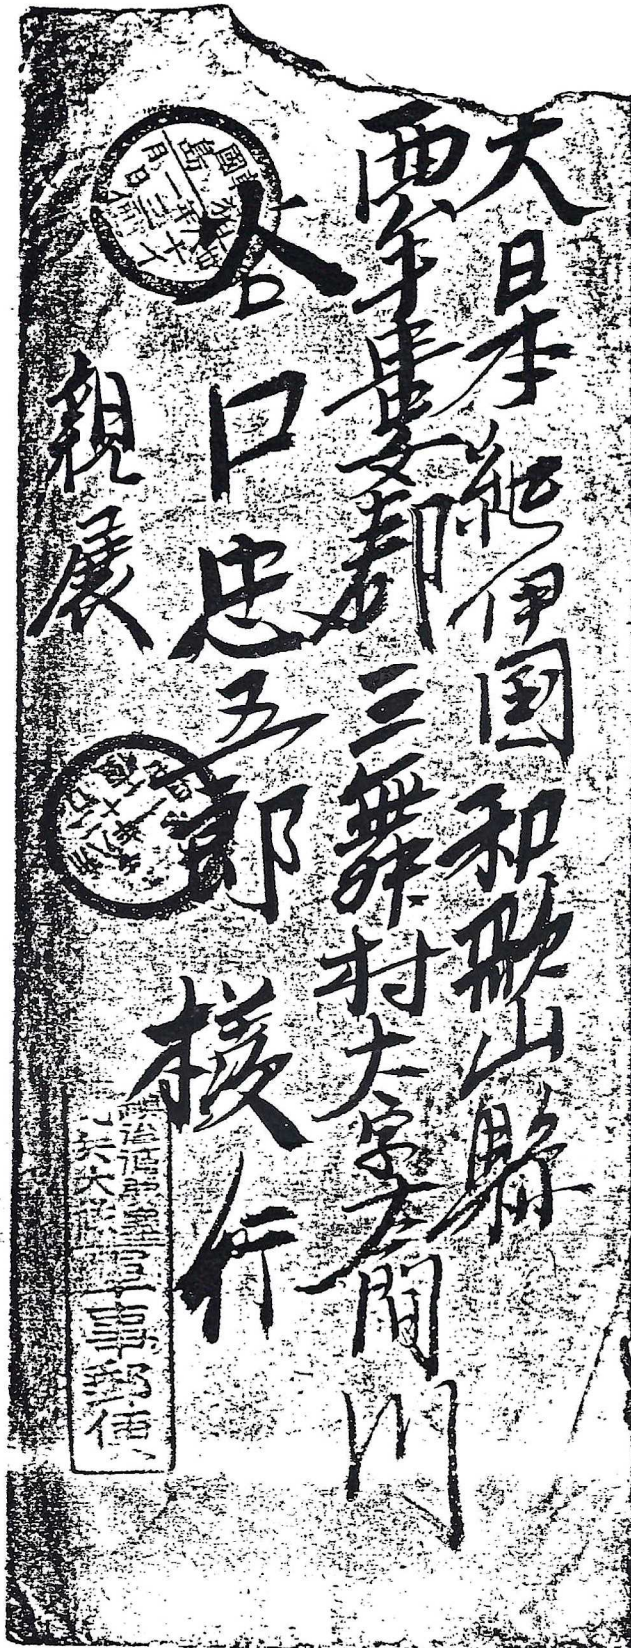 大日本紀伊国和歌山縣
西牟婁郡三舞村大字左間川
谷口忠五郎様行
親展
軍事郵便